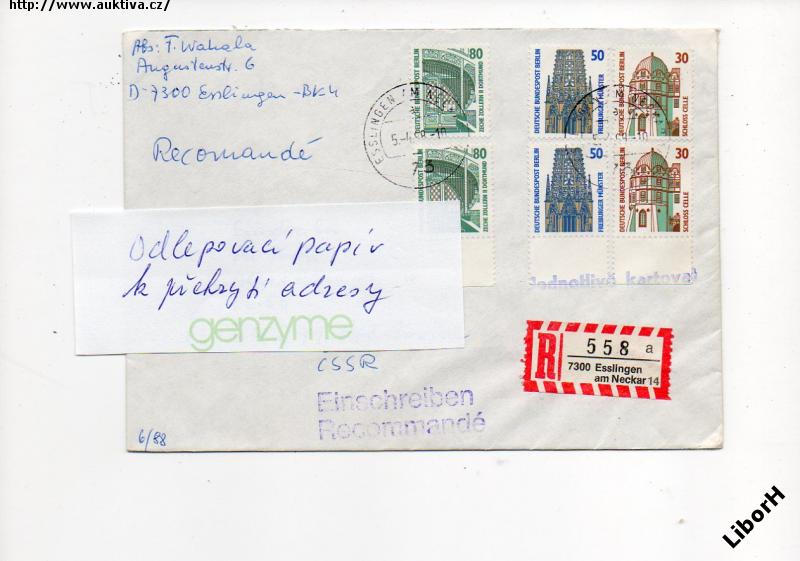 http://www.auktiva.cz/
Abs: F. Wahala
Augustenstr. 6
D-7300 Esslingen -BK4
Recomandé
80
DEUTSCHE BUNDESPOST BERLIN
ZECHE ZOLLERN II DORTMUND
50
DEUTSCHE BUNDESPOST BERLIN
FREIBURGER MÜNSTER
30
DEUTSCHE BUNDESPOST BERLIN
SCHLOSS CELLE
ESSLINGEN AM NECK
73
80
DEUTSCHE BUNDESPOST BERLIN
ZECHE ZOLLERN II DORTMUND
50
DEUTSCHE BUNDESPOST BERLIN
FREIBURGER MÜNSTER
30
DEUTSCHE BUNDESPOST BERLIN
SCHLOSS CELLE
Odlepovací papír
k překrytí adresy
genzyme
Jednotlivě kartovat
R 558 a
7300 Esslingen
am Neckar 14
ČSSR
Einschreiben
Recommandé
6/88
LiborH